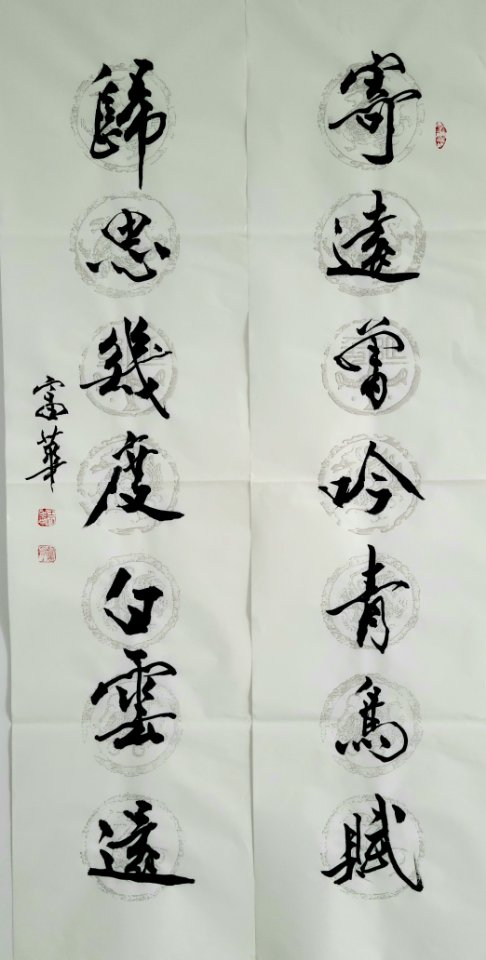 寄遠曾吟青鳥賦
歸思幾度白雲
富華